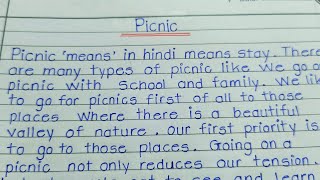 Picnic
Picnic 'means' in hindi means stay. There
are many types of picnic like we go on
picnic with School and family. We lik
to go for picnics first of all to those
places where there is a beautiful
valley of nature. our first priority is
to go to those places. Going on a
picnic not only reduces our tension.
to see and learn